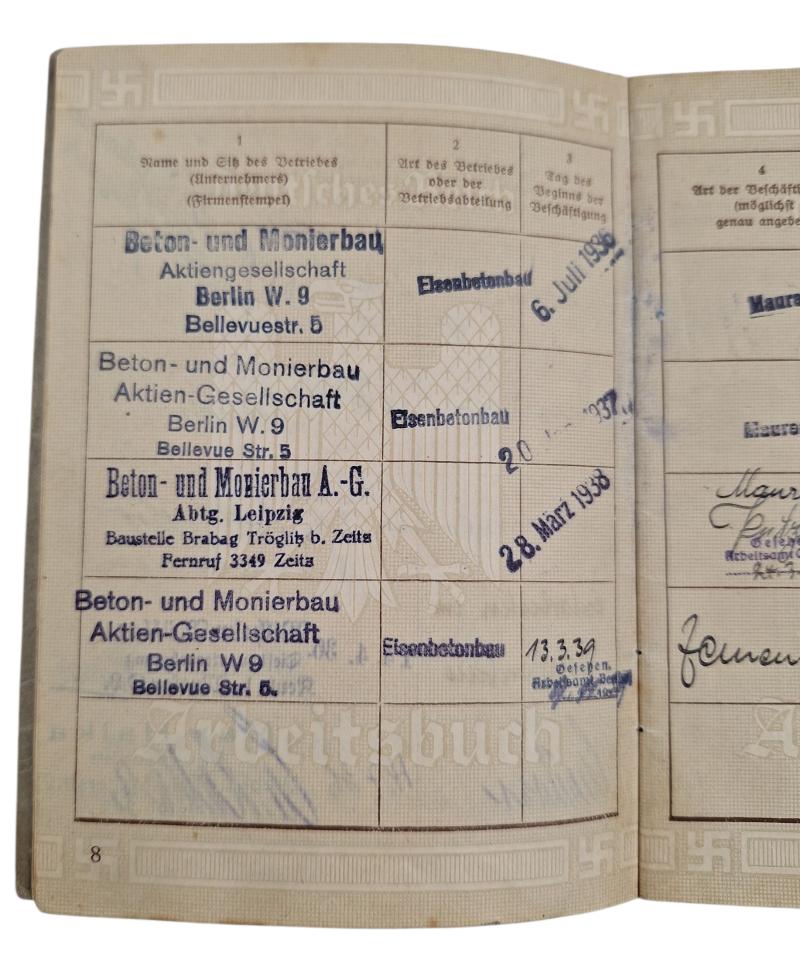 1
Name und Sitz des Betriebes
(Unternehmers)
(Firmenstempel)
2
Art des Betriebes
oder der
Betriebsabteilung
3
Tag des
Beginns der
Beschäftigung
4
Art der Beschäfti
(möglichst
genau angebe
Beton- und Monierbau
Aktiengesellschaft
Berlin W. 9
Bellevuestr. 5
Eisenbetonbau
6. Juli 1936
Maure
Beton- und Monierbau
Aktien-Gesellschaft
Berlin W. 9
Bellevue Str. 5
Eisenbetonbau
20 1937
Maure
Beton- und Monierbau A.-G.
Abtg. Leipzig
Baustelle Brabag Tröglitz b. Zeitz
Fernruf 3349 Zeitz
28. März 1938
Maur
Gesehen
Arbeitsamt
Beton- und Monierbau
Aktien-Gesellschaft
Berlin W 9
Bellevue Str. 5.
Eisenbetonbau
13.3.39
Gesehen.
Arbeitsamt
Zemen
Arbeitsbuch
8